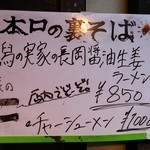 本日の裏そば
潟の実家の長岡醤油生姜
ラーメン
¥850
チャーシューメン ¥1000